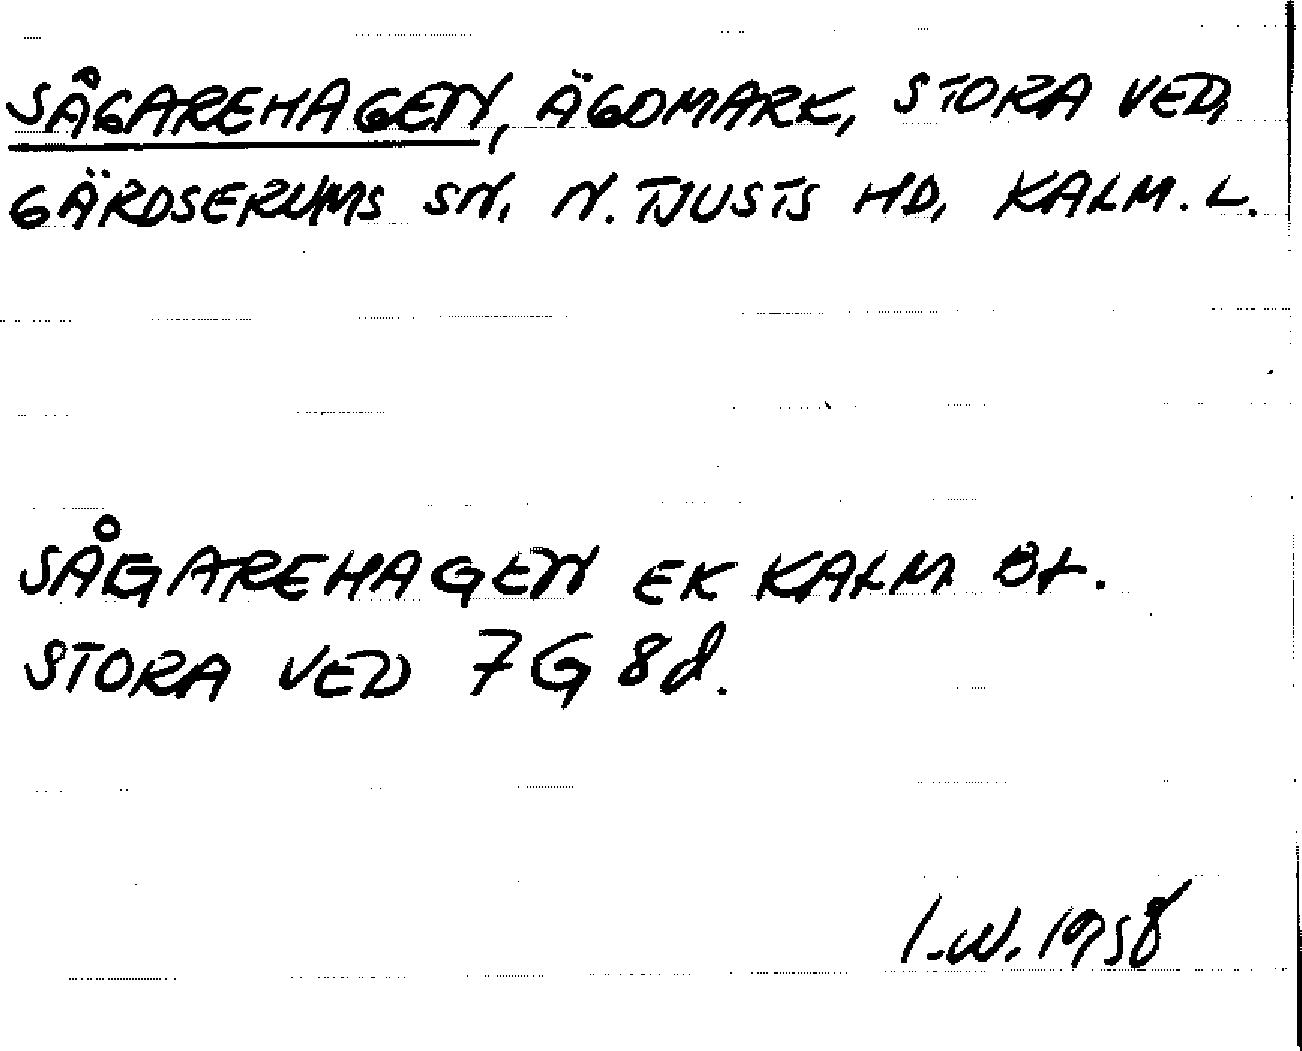 SÅGAREHAGEN, ÄGOMARK, STORA VED,
GÄRDSERUMS SN, N. TJUSTS HD, KALM. L.
SÅGAREHAGEN EK KALM Bl.
STORA VED 7G 8d.
I.W. 1958